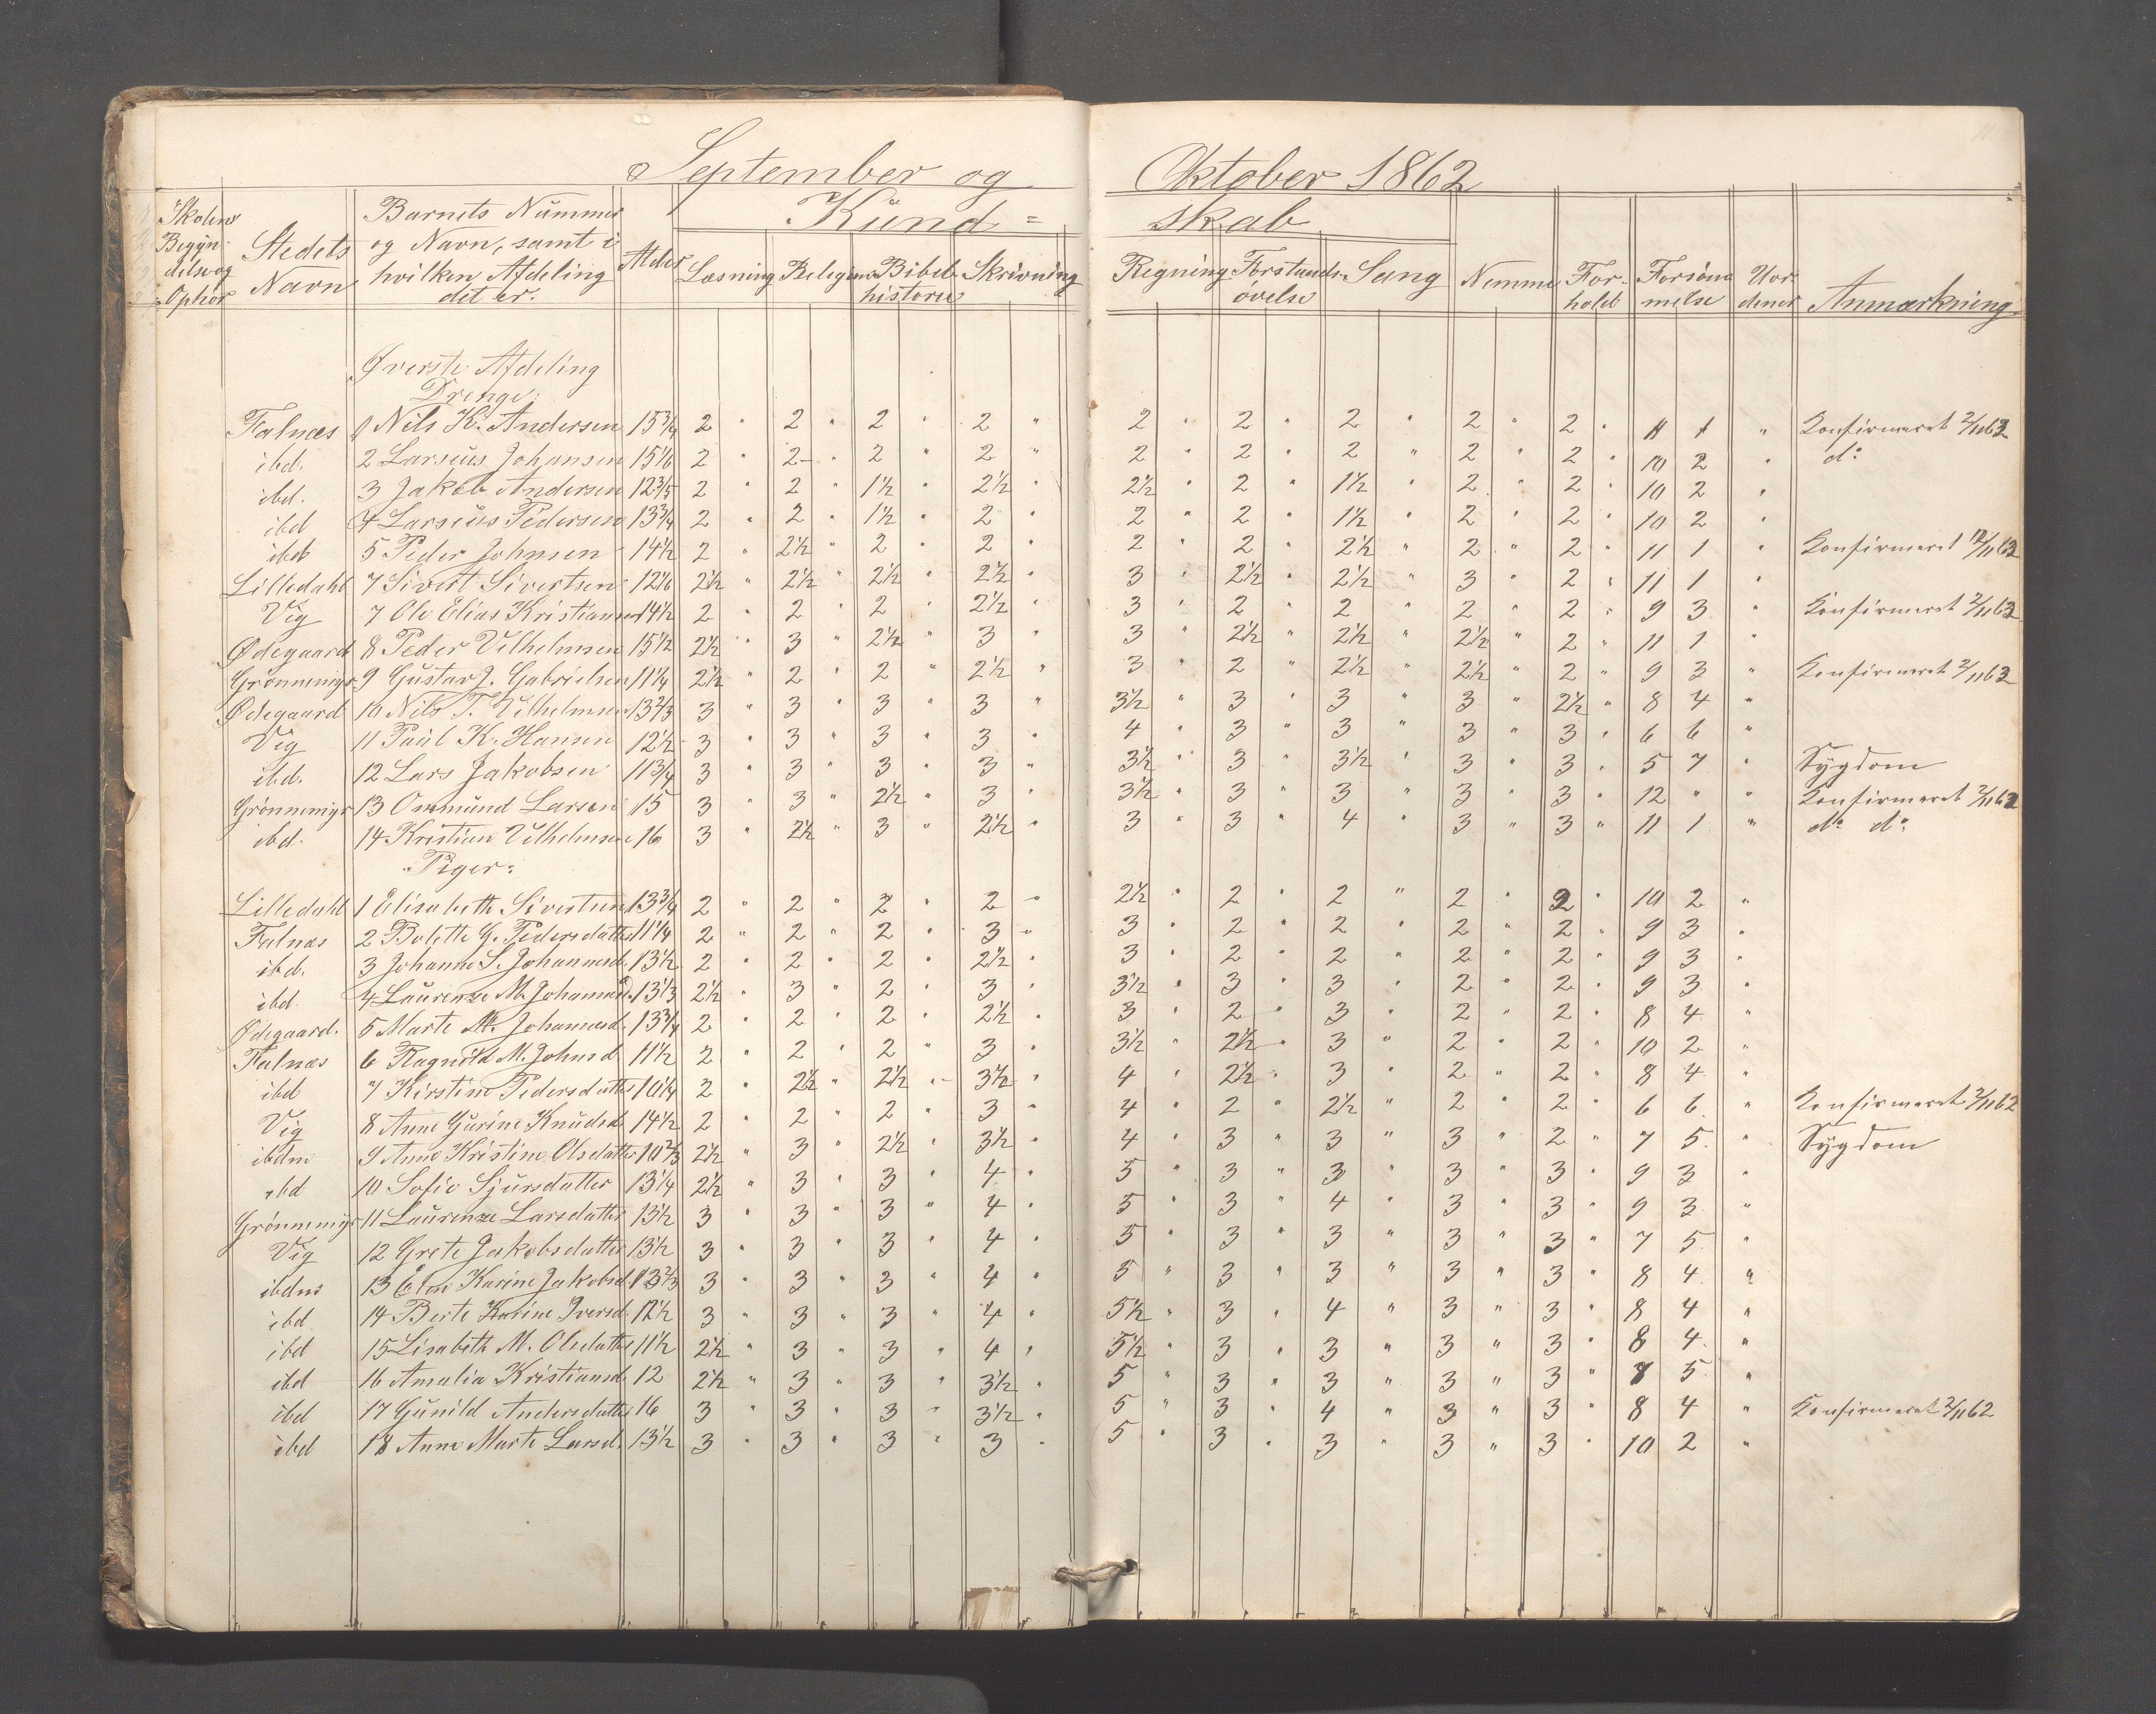 September og Oktober 1862
Skolens Begyndelse og Ophör | Stedets Navn | Barnets Nummer og Navn, samt i hvilken Afdeling det er. | Alder | Kund= skab | Læsning | Religion | Bibelhistorie | Skrivning | Regning | Forstandsövelse | Sang | Nemme | Forhold | Forsömmelse | Uordener | Anmærkning
Øverste Afdeling
Drenge:
Falnæs 1 Nils K. Andersen 15 3/4 2 " 2 " 2 " 2 " 2 " 2 " 2 " 2 " 2 " 11 1 " Konfirmeret 2/11 62
ibd. 2 Larseus Johansen 15 1/6 2 " 2 " 2 " 2 " 2 " 2 " 2 " 2 " 2 " 10 2 " do
ibd. 3 Jakob Andersen 12 3/5 2 " 2 " 1 1/2 " 2 1/2 " 2 1/2 " 2 " 1 1/2 " 2 " 2 " 10 2 "
ibd 4 Larseus Pedersen 13 3/4 2 " 2 " 1 1/2 " 2 " 2 " 2 " 1 1/2 " 2 " 2 " 10 2 "
ibd 5 Peder Johnsen 14 1/2 2 " 2 1/2 " 2 " 2 " 2 " 2 " 2 1/2 " 2 " 2 " 11 1 " Konfirmeret
Lilledahl 7 Sivert Sivertsen 12 1/6 2 1/2 " 2 1/2 " 2 1/2 " 2 1/2 " 3 " 2 1/2 " 2 1/2 " 3 " 2 " 11 1 "
Vig 7 Ole Elias Kristiansen 14 1/2 2 " 2 " 2 " 2 1/2 " 3 " 2 " 2 " 2 " 2 " 9 3 " Konfirmeret 2/11 62
Ødegaard 8 Peder Vilhelmsen 15 1/2 2 1/2 " 3 " 2 1/2 " 3 " 3 " 2 1/2 " 2 1/2 " 2 1/2 " 2 " 11 1
Grönnemyr 9 Gustav J. Gabrielsen 11 1/4 2 1/2 " 2 " 2 " 2 1/2 " 3 " 2 " 2 1/2 " 2 1/2 " 2 " 9 3 " Konfirmeret 2/11 62
Ødegaard 10 Nils T. Vilhelmsen 13 2/3 3 " 3 " 3 " 3 " 3 1/2 " 3 " 3 " 3 " 2 1/2 " 8 4 "
Vig 11 Paul K. Hansen 12 1/2 3 " 3 " 3 " 3 " 4 " 3 " 3 " 3 " 3 " 6 6 "
ibd. 12 Lars Jakobsen 11 3/4 3 " 3 " 3 " 3 " 3 1/2 " 3 " 3 1/2 " 3 " 3 " 5 7 " Sygdom
Grönnemyr 13 Ommund Larsen 15 3 " 3 " 2 1/2 " 3 " 3 1/2 " 3 " 3 " 3 " 3 " 12 " " Konfirmeret 2/11 62
ibd. 14 Kristian Vilhelmsen 16 3 " 2 1/2 " 3 " 2 1/2 " 3 " 3 " 4 " 3 " 3 " 11 1 " do do
Piger:
Lilledahl 1 Elisabeth Sivertsen 13 3/4 2 " 2 " 2 " 2 " 2 1/2 " 2 " 2 " 2 " 2 " 10 2 "
Falnæs 2 Bolette G. Pedersdatter 11 1/4 2 " 2 " 2 " 3 " 3 " 2 " 2 " 2 " 2 " 9 3 "
ibd. 3 Johanne S. Johannesd. 13 1/2 2 " 2 " 2 " 2 1/2 " 3 " 2 " 2 " 2 " 2 " 9 3 "
ibd. 4 Laurenze M. Johannesd. 13 1/3 2 1/2 " 3 " 2 " 3 " 3 1/2 " 3 " 3 " 2 " 2 " 9 3 "
Ødegaard. 5 Marte M. Johannesd. 13 3/4 2 " 2 " 2 " 2 1/2 " 3 " 2 " 3 " 2 " 2 " 8 4 "
Falnæs 6 Ragnild M. Johnsd. 11 1/2 2 " 2 " 2 " 3 " 3 1/2 " 2 1/2 " 3 " 2 " 2 " 10 2 "
ibd 7 Kirstine Pedersdatter 10 1/4 2 " 2 1/2 " 2 1/2 " 3 1/2 " 4 " 2 1/2 " 3 " 2 " 2 " 8 4 "
Vig 8 Anne Gurine Knudsd. 14 1/2 2 " 2 " 2 " 3 " 4 " 2 " 2 1/2 " 2 " 2 " 6 6 " Konfirmeret 2/11 62
ibdm 9 Anne Kristine Olsdatter 10 2/3 2 1/2 " 3 " 2 1/2 " 3 1/2 " 4 " 3 " 3 " 3 " 2 " 7 5 " Sygdom
ibd 10 Sofie Sjursdatter 13 1/4 2 1/2 " 3 " 3 " 4 " 5 " 3 " 3 " 3 " 3 " 9 3 "
Grönnemyr 11 Laurenze Larsdatter 13 1/2 3 " 3 " 3 " 4 " 5 " 3 " 4 " 3 " 3 " 9 3 "
Vig 12 Grete Jakobsdatter 13 1/2 3 " 3 " 3 " 4 " 5 " 3 " 3 " 3 " 3 " 7 5 "
ibdm 13 Elen Karine Jakobsd. 13 2/3 3 " 3 " 3 " 4 " 5 " 3 " 3 " 3 " 3 " 8 4 "
ibd 14 Berte Karine Iversd. 12 1/2 3 " 3 " 3 " 4 " 5 1/2 " 3 " 4 " 3 " 3 " 8 4 "
ibd 15 Lisabeth M. Olsdatter 11 1/2 2 1/2 " 3 " 3 " 4 " 5 1/2 " 3 " 3 " 3 " 3 " 8 4 "
ibd 16 Amalia Kristiansd. 12 2 1/2 " 3 " 3 " 3 1/2 " 5 " 3 " 3 " 3 " 3 " 7 5 "
ibd 17 Gunild Andersdatter 16 3 " 3 " 3 " 3 1/2 " 5 " 3 " 4 " 3 " 3 " 8 4 " Konfirmeret 2/11 62
ibd 18 Anne Marte Larsd. 13 1/2 3 " 3 " 3 " 3 " 5 " 3 " 3 " 3 " 3 " 10 2 "